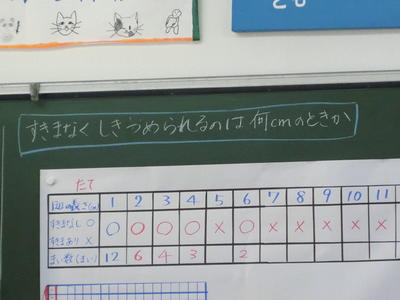 28
すきまなく しきつめられるのは 何cmのときか
たて
1 2 3 4 5 6 7 8 9 10 11
すきまなし ○ ○ ○ ○ ○ × ○ × × × × ×
すきまあり ×
まい数(まい) 12 6 4 3 2